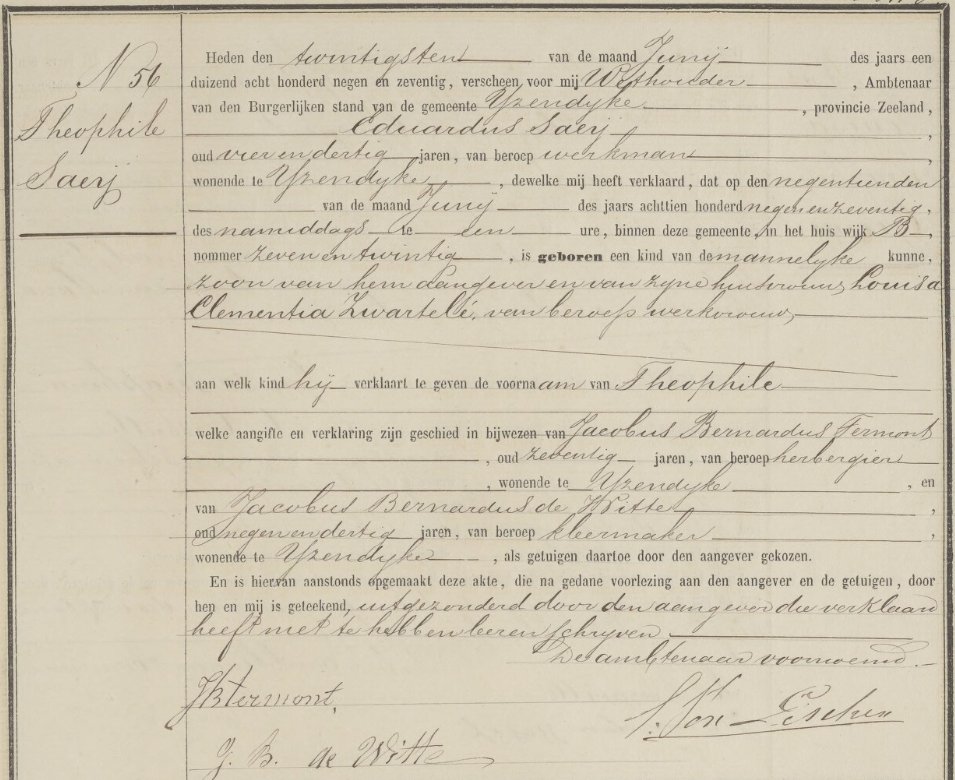 N 56
Theophile
Saeij
Heden den twintigsten van de maand Junij des jaars een
duizend acht honderd negen en zeventig, verscheen voor mij Wethouder, Ambtenaar
van den Burgerlijken stand van de gemeente Yzendyke, provincie Zeeland,
Eduardus Saeij,
oud vier en dertig jaren, van beroep werkman,
wonende te Yzendyke, dewelke mij heeft verklaard, dat op den negentienden
van de maand Junij des jaars achttien honderd negen en zeventig,
des namiddags te een ure, binnen deze gemeente, in het huis wijk B,
nommer zeven en twintig, is geboren een kind van de mannelyke kunne,
zoon van hem aangever en van zyne huisvrouw, Louisa
Clementia Zwartelé, van beroep werkvrouw,
aan welk kind hij verklaart te geven de voornaam van Theophile
welke aangifte en verklaring zijn geschied in bijwezen van Jacobus Bernardus Fermont
, oud zeventig jaren, van beroep herbergier
, wonende te Yzendyke, en
van Jacobus Bernardus de Witte,
oud negen en dertig jaren, van beroep kleermaker,
wonende te Yzendyke, als getuigen daartoe door den aangever gekozen.
En is hiervan aanstonds opgemaakt deze akte, die na gedane voorlezing aan den aangever en de getuigen, door
hen en mij is geteekend, uitgezonderd door den aangever die verklaard
heeft niet te hebben leeren schryven
De ambtenaar voornoemd.
JBFermont,
J. B. de Witte